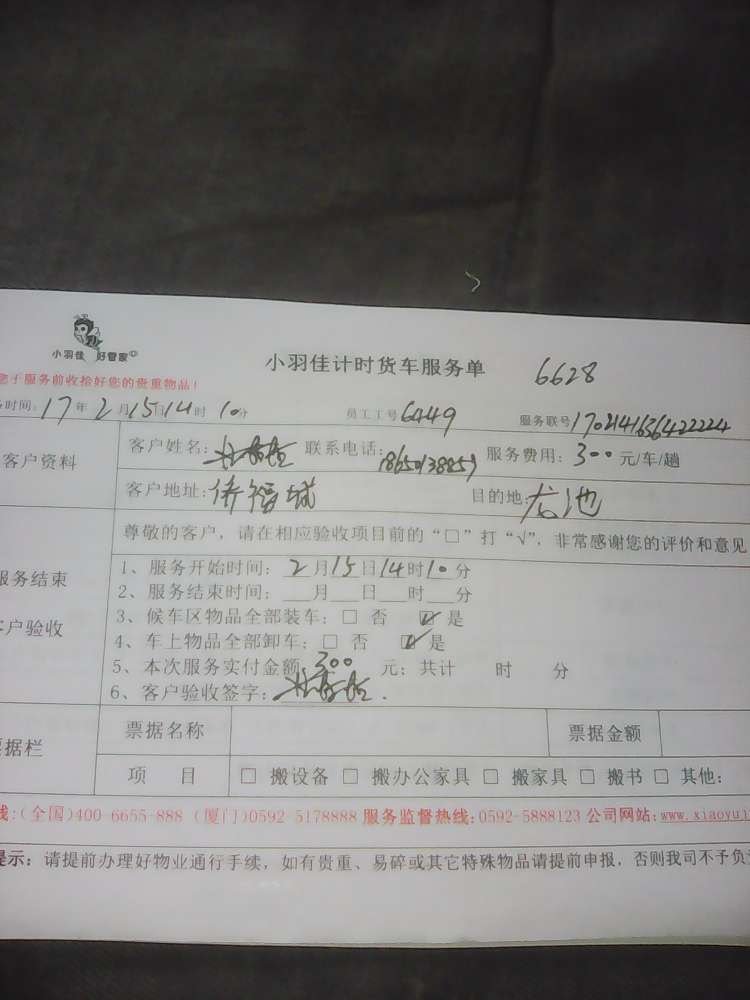 小羽佳 好管家
小羽佳计时货车服务单 6628
于服务前收拾好您的贵重物品！
时间：17年2月15日14时10分 员工工号6449 服务联号1702141636422224
客户资料
客户姓名： 联系电话：18650138857 服务费用：300元/车/趟
客户地址：侨福城 目的地：龙池
尊敬的客户，请在相应验收项目前的“□”打“√”，非常感谢您的评价和意见
服务结束
客户验收
1、服务开始时间：2月15日14时10分
2、服务结束时间：__月__日__时__分
3、候车区物品全部装车：□ 否 ☑ 是
4、车上物品全部卸车：□ 否 ☑ 是
5、本次服务实付金额：300元；共计 时 分
6、客户验收签字：
票据栏
票据名称 票据金额
项 目 □ 搬设备 □ 搬办公家具 □ 搬家具 □ 搬书 □ 其他：
线：(全国)400-6655-888 (厦门)0592-5178888 服务监督热线：0592-5888123 公司网站：www.xiaoyuj
提示：请提前办理好物业通行手续，如有贵重、易碎或其它特殊物品请提前申报，否则我司不予负